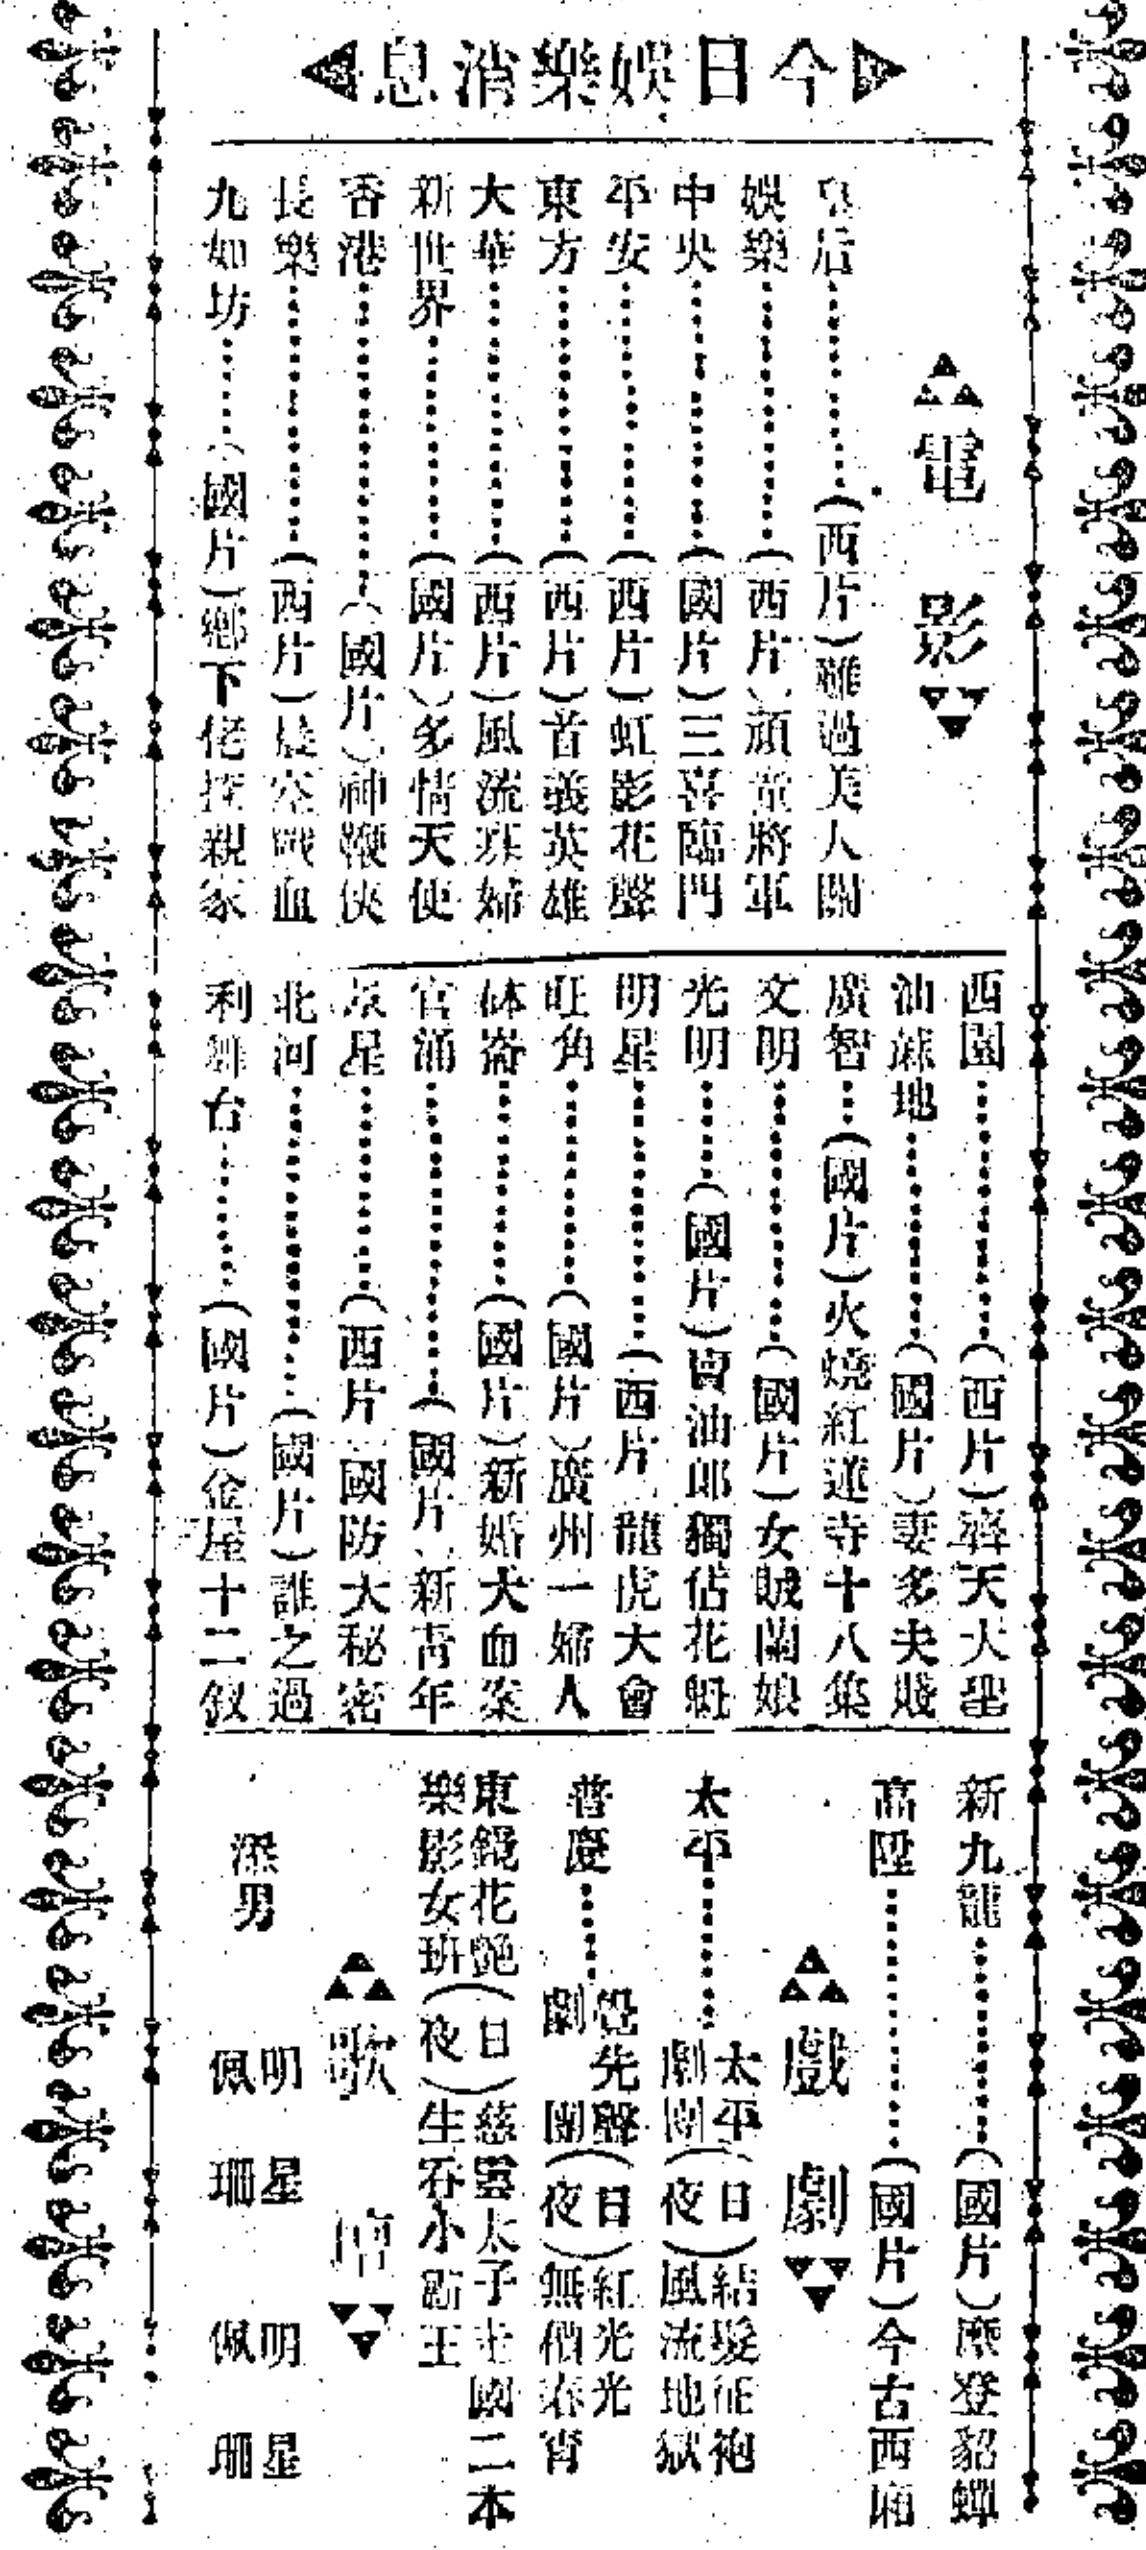 今日娛樂消息
電影
皇后（西片）難過美人關
娛樂（西片）頑童將軍
中央（國片）三喜臨門
平安（西片）虹影花聲
東方（西片）首義英雄
大華（西片）風流寡婦
新世界（國片）多情天使
香港（國片）神鞭俠
長樂（西片）晨空戰血
九如坊（國片）鄉下佬探親家
西園（西片）齊天大聖
油蔴地（國片）妻多夫賤
廣智（國片）火燒紅蓮寺十八集
文明（國片）女賊蘭娘
光明（國片）賣油郎獨佔花魁
明星（西片）龍虎大會
旺角（國片）廣州一婦人
砵崙（國片）新婚大血案
官涌（國片）新青年
景星（西片）國防大秘密
北河（國片）誰之過
利舞台（國片）金屋十二釵
新九龍（國片）摩登貂蟬
高陞（國片）今古西廂
戲劇
太平 太平劇團（日）結髮征袍
（夜）風流地獄
普慶 覺先聲劇團（日）紅光光
（夜）無價春宵
東鏡花艷（日）慈雲太子走國二本
樂影女班（夜）生吞小霸王
歌壇
添男
明星 明星
佩珊 佩珊